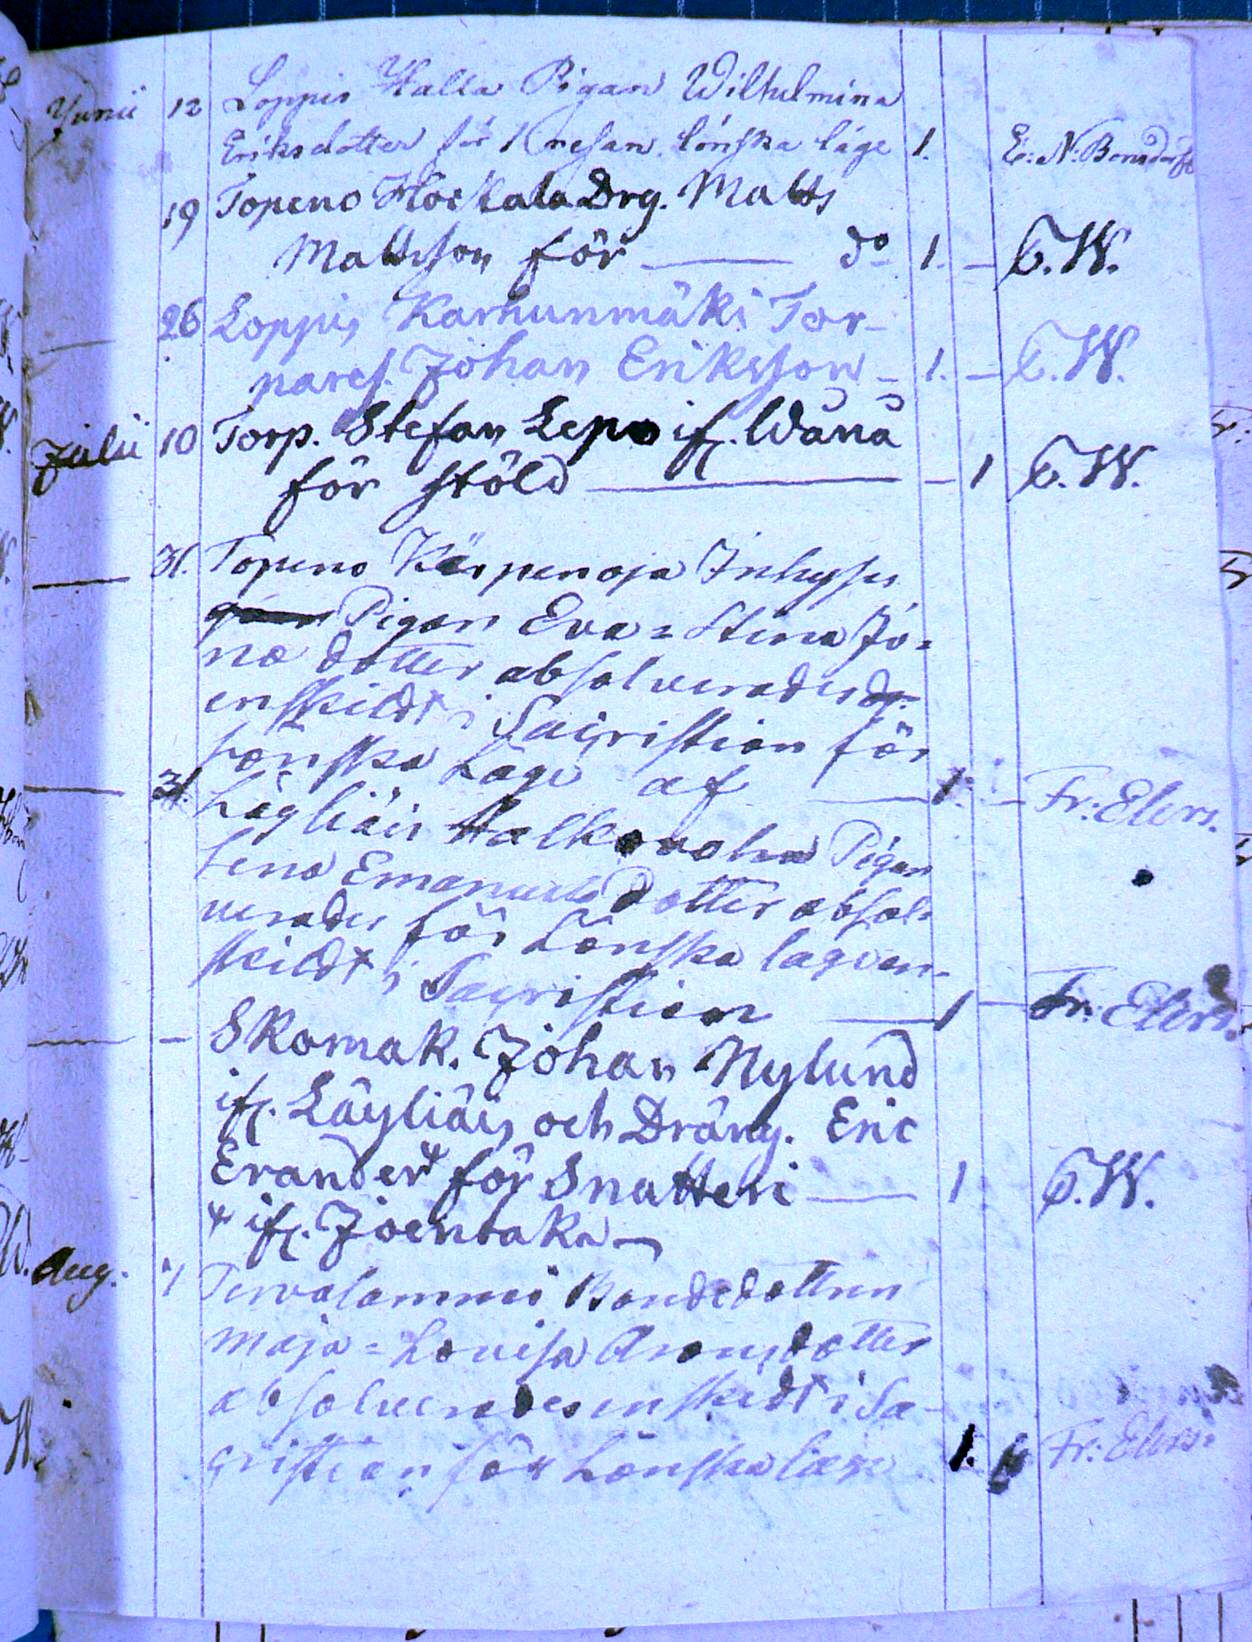 Junii 12 Loppis Halla Pigan Wilhelmina
Eriksdotter för 1 resan lönska läge 1. E: N: Bonsdorff
19 Topeno Hoikala Drg. Matts
Mattsson för — do 1. — C.W.
26 Loppis Karhunmäki Tor-
paref. Johan Eriksson — 1. — C.W.
Julii 10 Torp. Stefan Lepo if. Wånå
för stöld — 1 C.W.
31. Topeno Kärpenoja Inhyses
Pigan Eva=Stina Jo=
nædotter absolverades
enskildt i Sacristian för
lönska Läge af — 1. — Fr: Elers.
31. Läyliäis Pigan
Lena Emanuelsdotter absol-
verades för Lönska läge en-
skildt i Sacristian — 1 — Fr: Elers.
— Skomak. Johan Nylund
if. Läyliäis och Dräng. Eric
Erander* för Snatteri — 1 C.W.
* if. Joentaka —
Aug. Tervalammi Bondedottren
Maja=Lovisa Aronsdotter
absolverades enskildt i Sa-
cristian för Lönska läge 1. Fr: Elers.